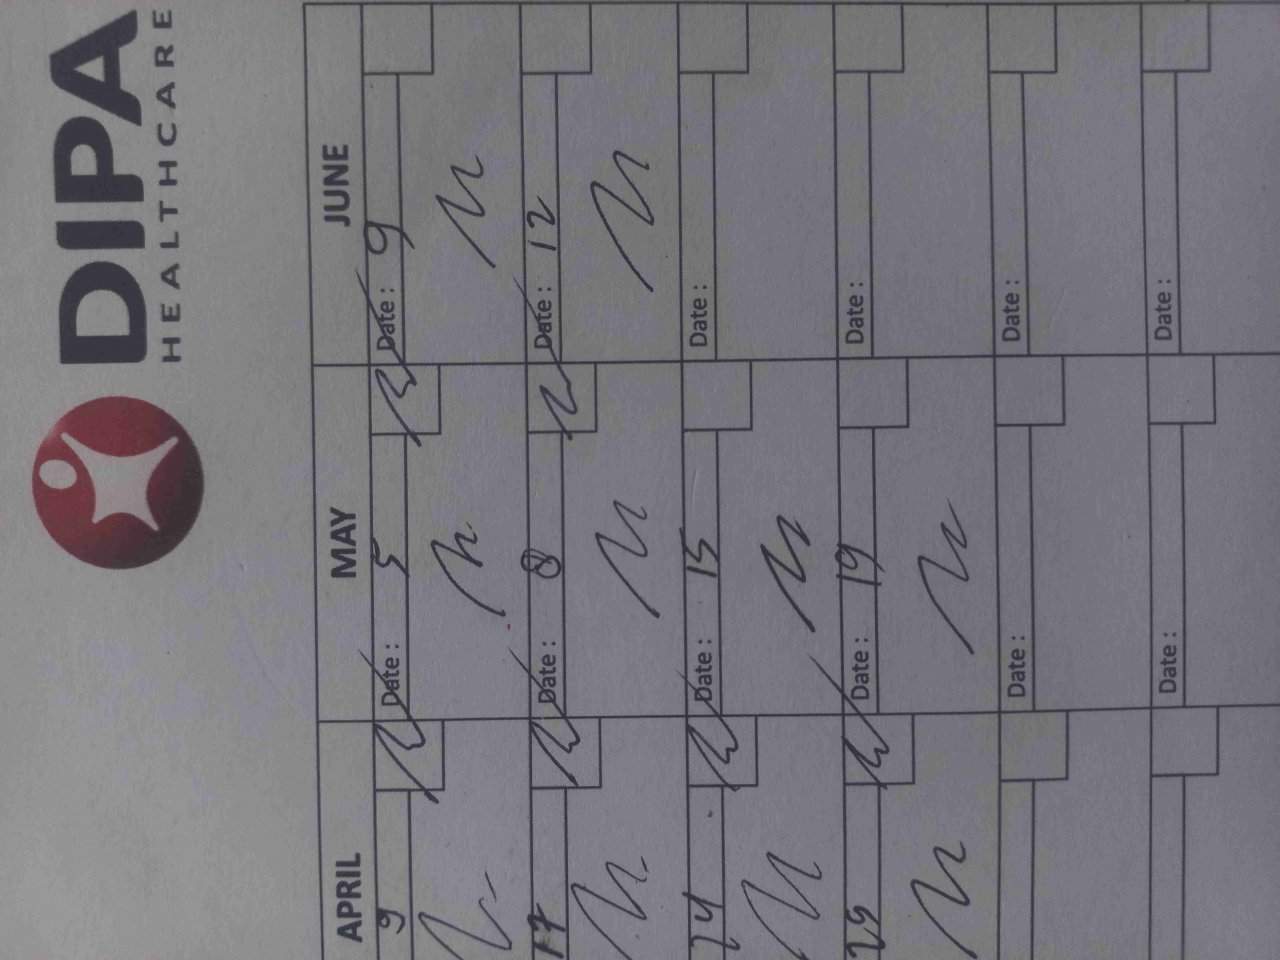 DIPA
HEALTHCARE
APRIL MAY JUNE
9 Date : 5 Date : 9
17 Date : 8 Date : 12
24 Date : 15 Date :
29 Date : 19 Date :
Date : Date :
Date : Date :